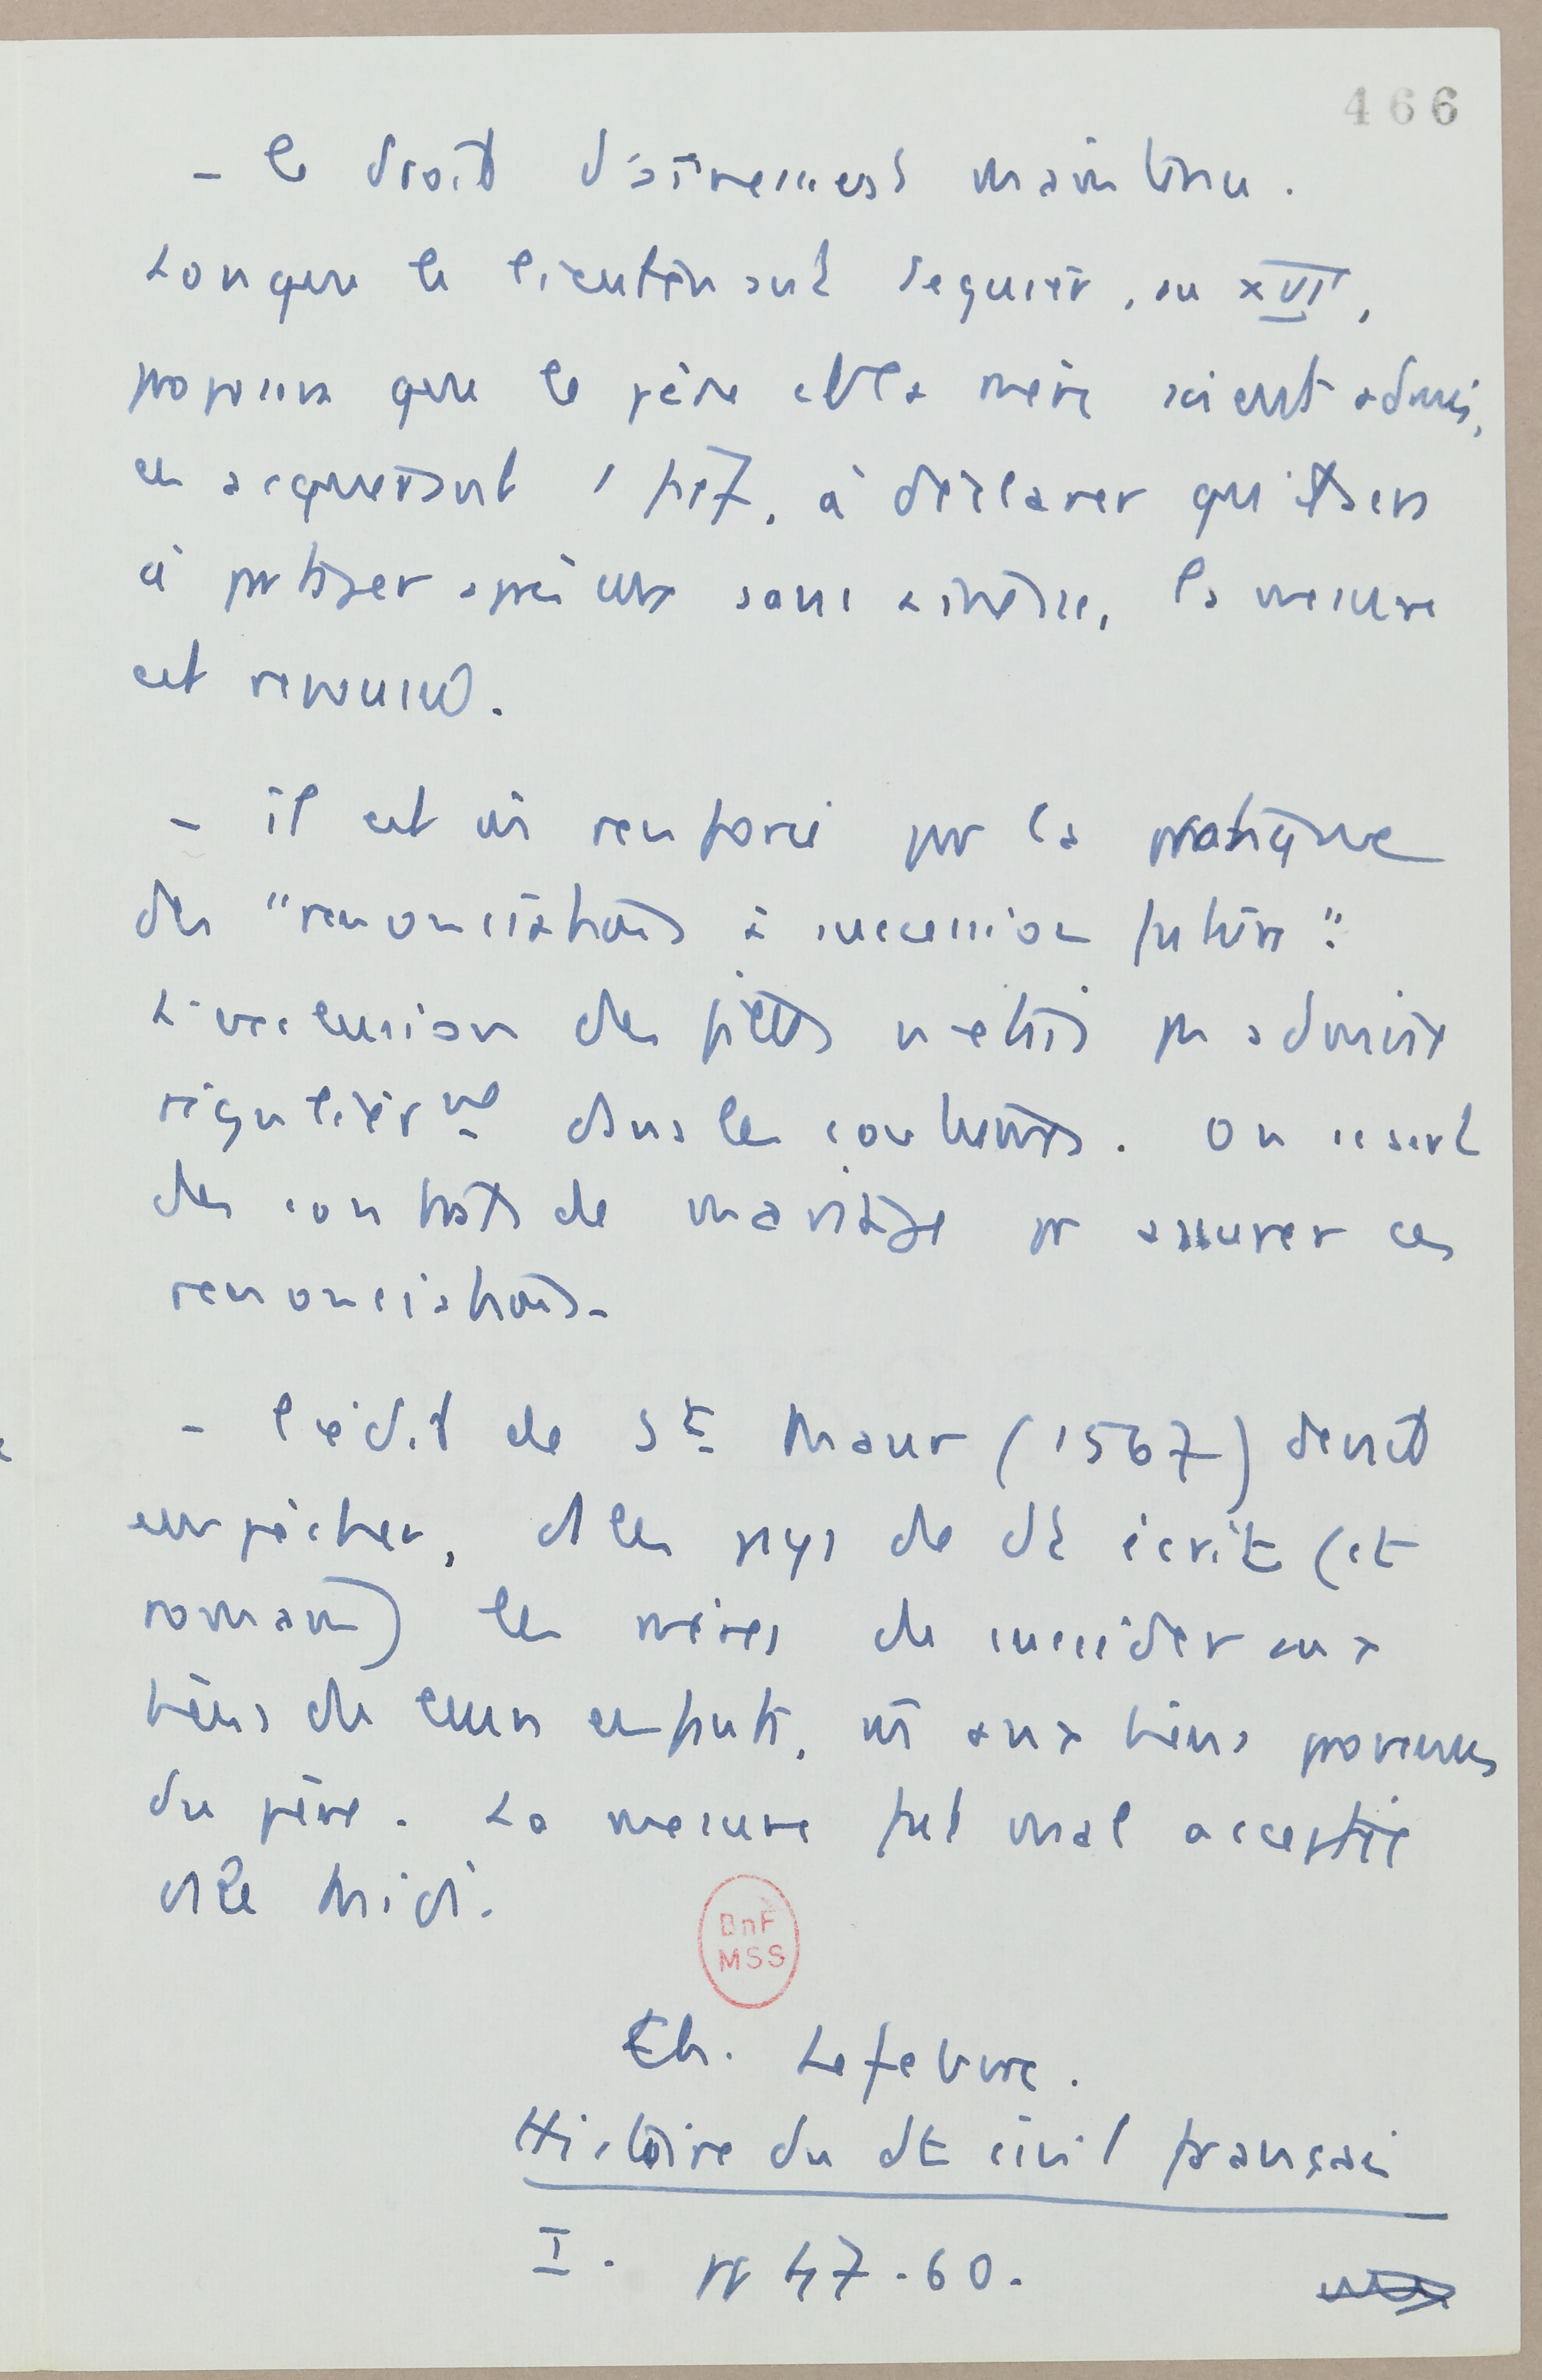 466
- le droit d'aînesse est maintenu.
Lorsque le lieutenant Seguier, au XVI,
propose que le père et la mère soient admis,
en acquérant 1 fief, à déclarer qu'il sera
à partager après eux sans aînesse, la mesure
est repoussée.
- il est mi renforcé par la pratique
des "renonciations à succession future".
L'exclusion des filles n'était pas admise
régulièrmt dans les coutumes. On se sert
des contrats de mariage pr assurer ces
renonciations.
- l'édit de St Maur (1567) devait
empêcher, ds les pays de dt écrit (et
romain) les mères de succéder aux
biens de leurs enfants, mi aux biens provenus
du père. La mesure fut mal acceptée
ds le Midi.
BnF
MSS
Ch. Lefebvre.
Histoire du dt civil français
I. pp 47-60.